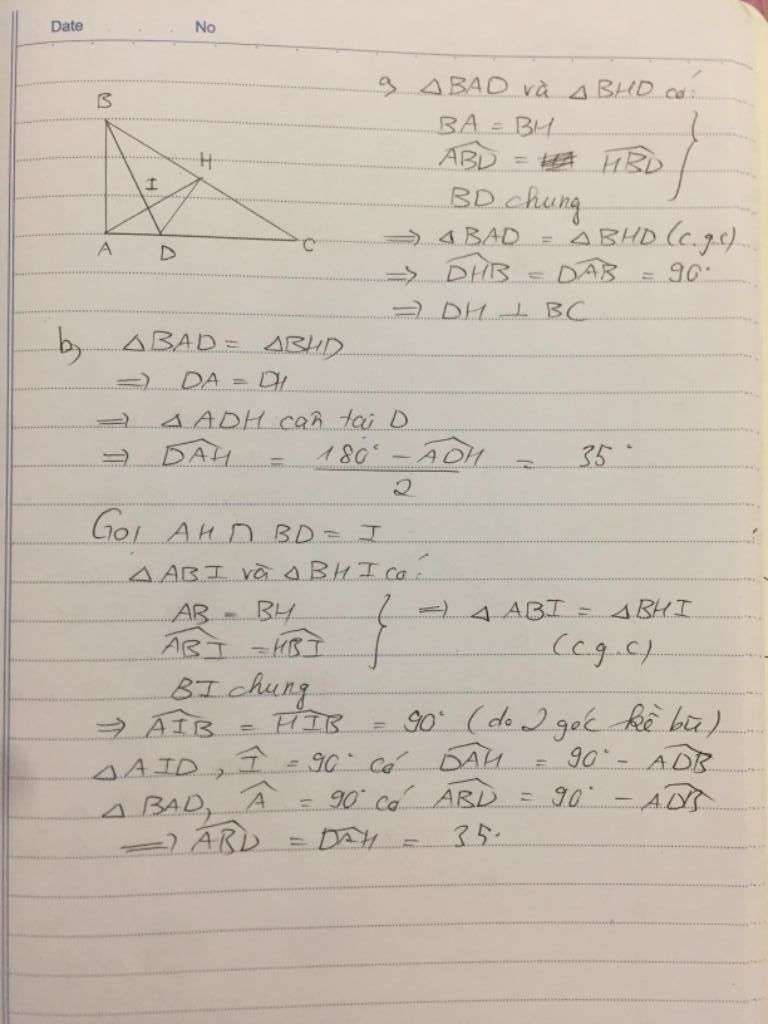 Date No
a, △BAD và △BHD có:
B
H
I
A
D
C
BA = BH
\widehat{ABD} = \widehat{HBD}
BD chung
⇒ △BAD = △BHD (c.g.c)
⇒ \widehat{DHB} = \widehat{DAB} = 90°
⇒ DH ⊥ BC
b, △BAD = △BHD
⇒ DA = DH
⇒ △ADH cân tại D
⇒ \widehat{DAH} = \frac{180° - \widehat{ADH}}{2} = 35°
Gọi AH ∩ BD = I
△ABI và △BHI có:
AB = BH
\widehat{ABI} = \widehat{HBI}
BI chung
⇒ △ABI = △BHI
(c.g.c)
⇒ \widehat{AIB} = \widehat{HIB} = 90° (do 2 góc kề bù)
△AID, \widehat{I} = 90° có \widehat{DAH} = 90° - \widehat{ADB}
△BAD, \widehat{A} = 90° có \widehat{ABD} = 90° - \widehat{ADB}
⇒ \widehat{ABD} = \widehat{DAH} = 35°